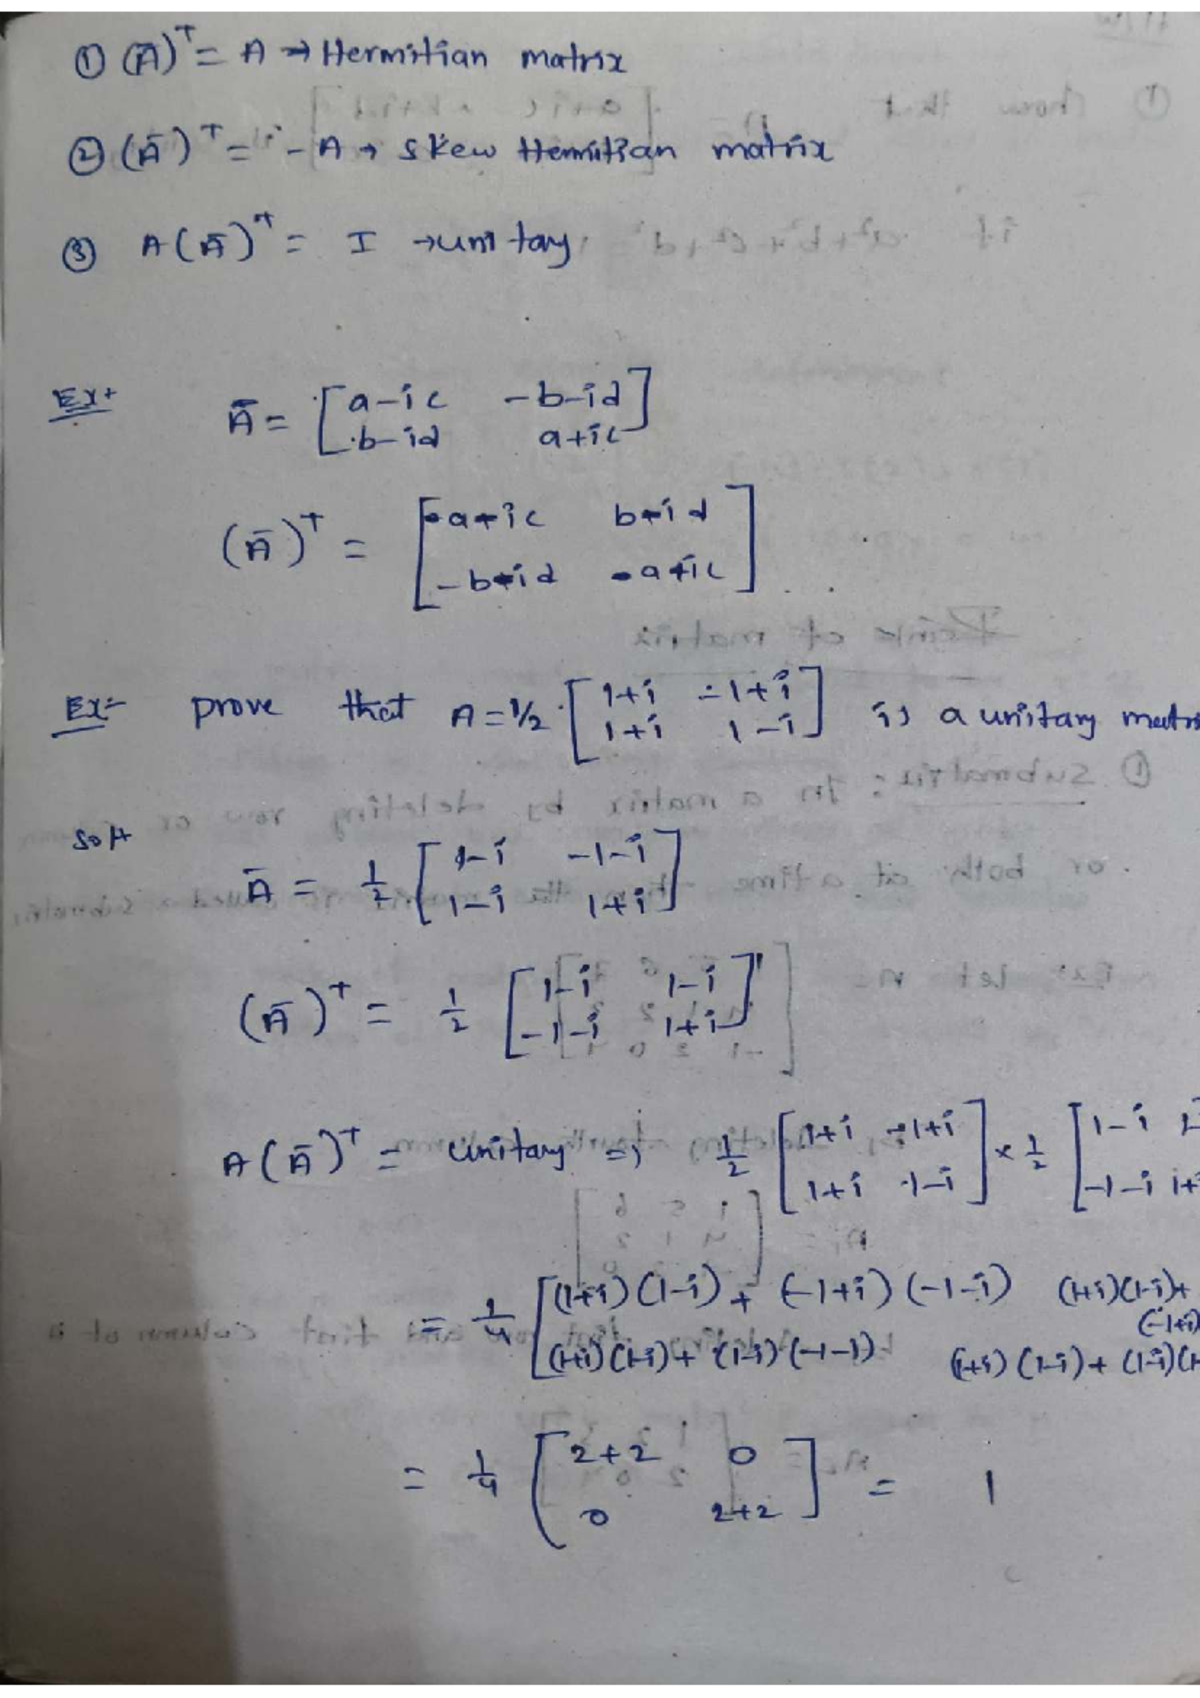 ① (Ā)ᵀ = A → Hermitian matrix
② (Ā)ᵀ = - A → skew Hermitian matrix
③ A(Ā)ᵀ = I → unitay
Ex→ Ā = [a-ic -b-id]
[b-id a+ic]
(Ā)ᵀ = [a+ic b+id]
[-b+id a+ic]
Ex- prove that A = 1/2 [1+i -1+i] is a unitary
[1+i 1-i]
Sol→
Ā = 1/2 [1-i -1-i]
[1-i 1+i]
(Ā)ᵀ = 1/2 [1-i 1-i]
[-1-i 1+i]
A(Ā)ᵀ = unitary ⇒ 1/2 [1+i -1+i] × 1/2 [1-i
[1+i 1-i] [-1-i
= 1/4 [(1+i)(1-i) + (-1+i)(-1-i) (1+i)(1-i)+
(-1+i)
[(1+i)(1-i) + (1-i)(-1-i) (1+i)(1-i) + (1-i)(
= 1/4 [2+2 0] = 1
[0 2+2]